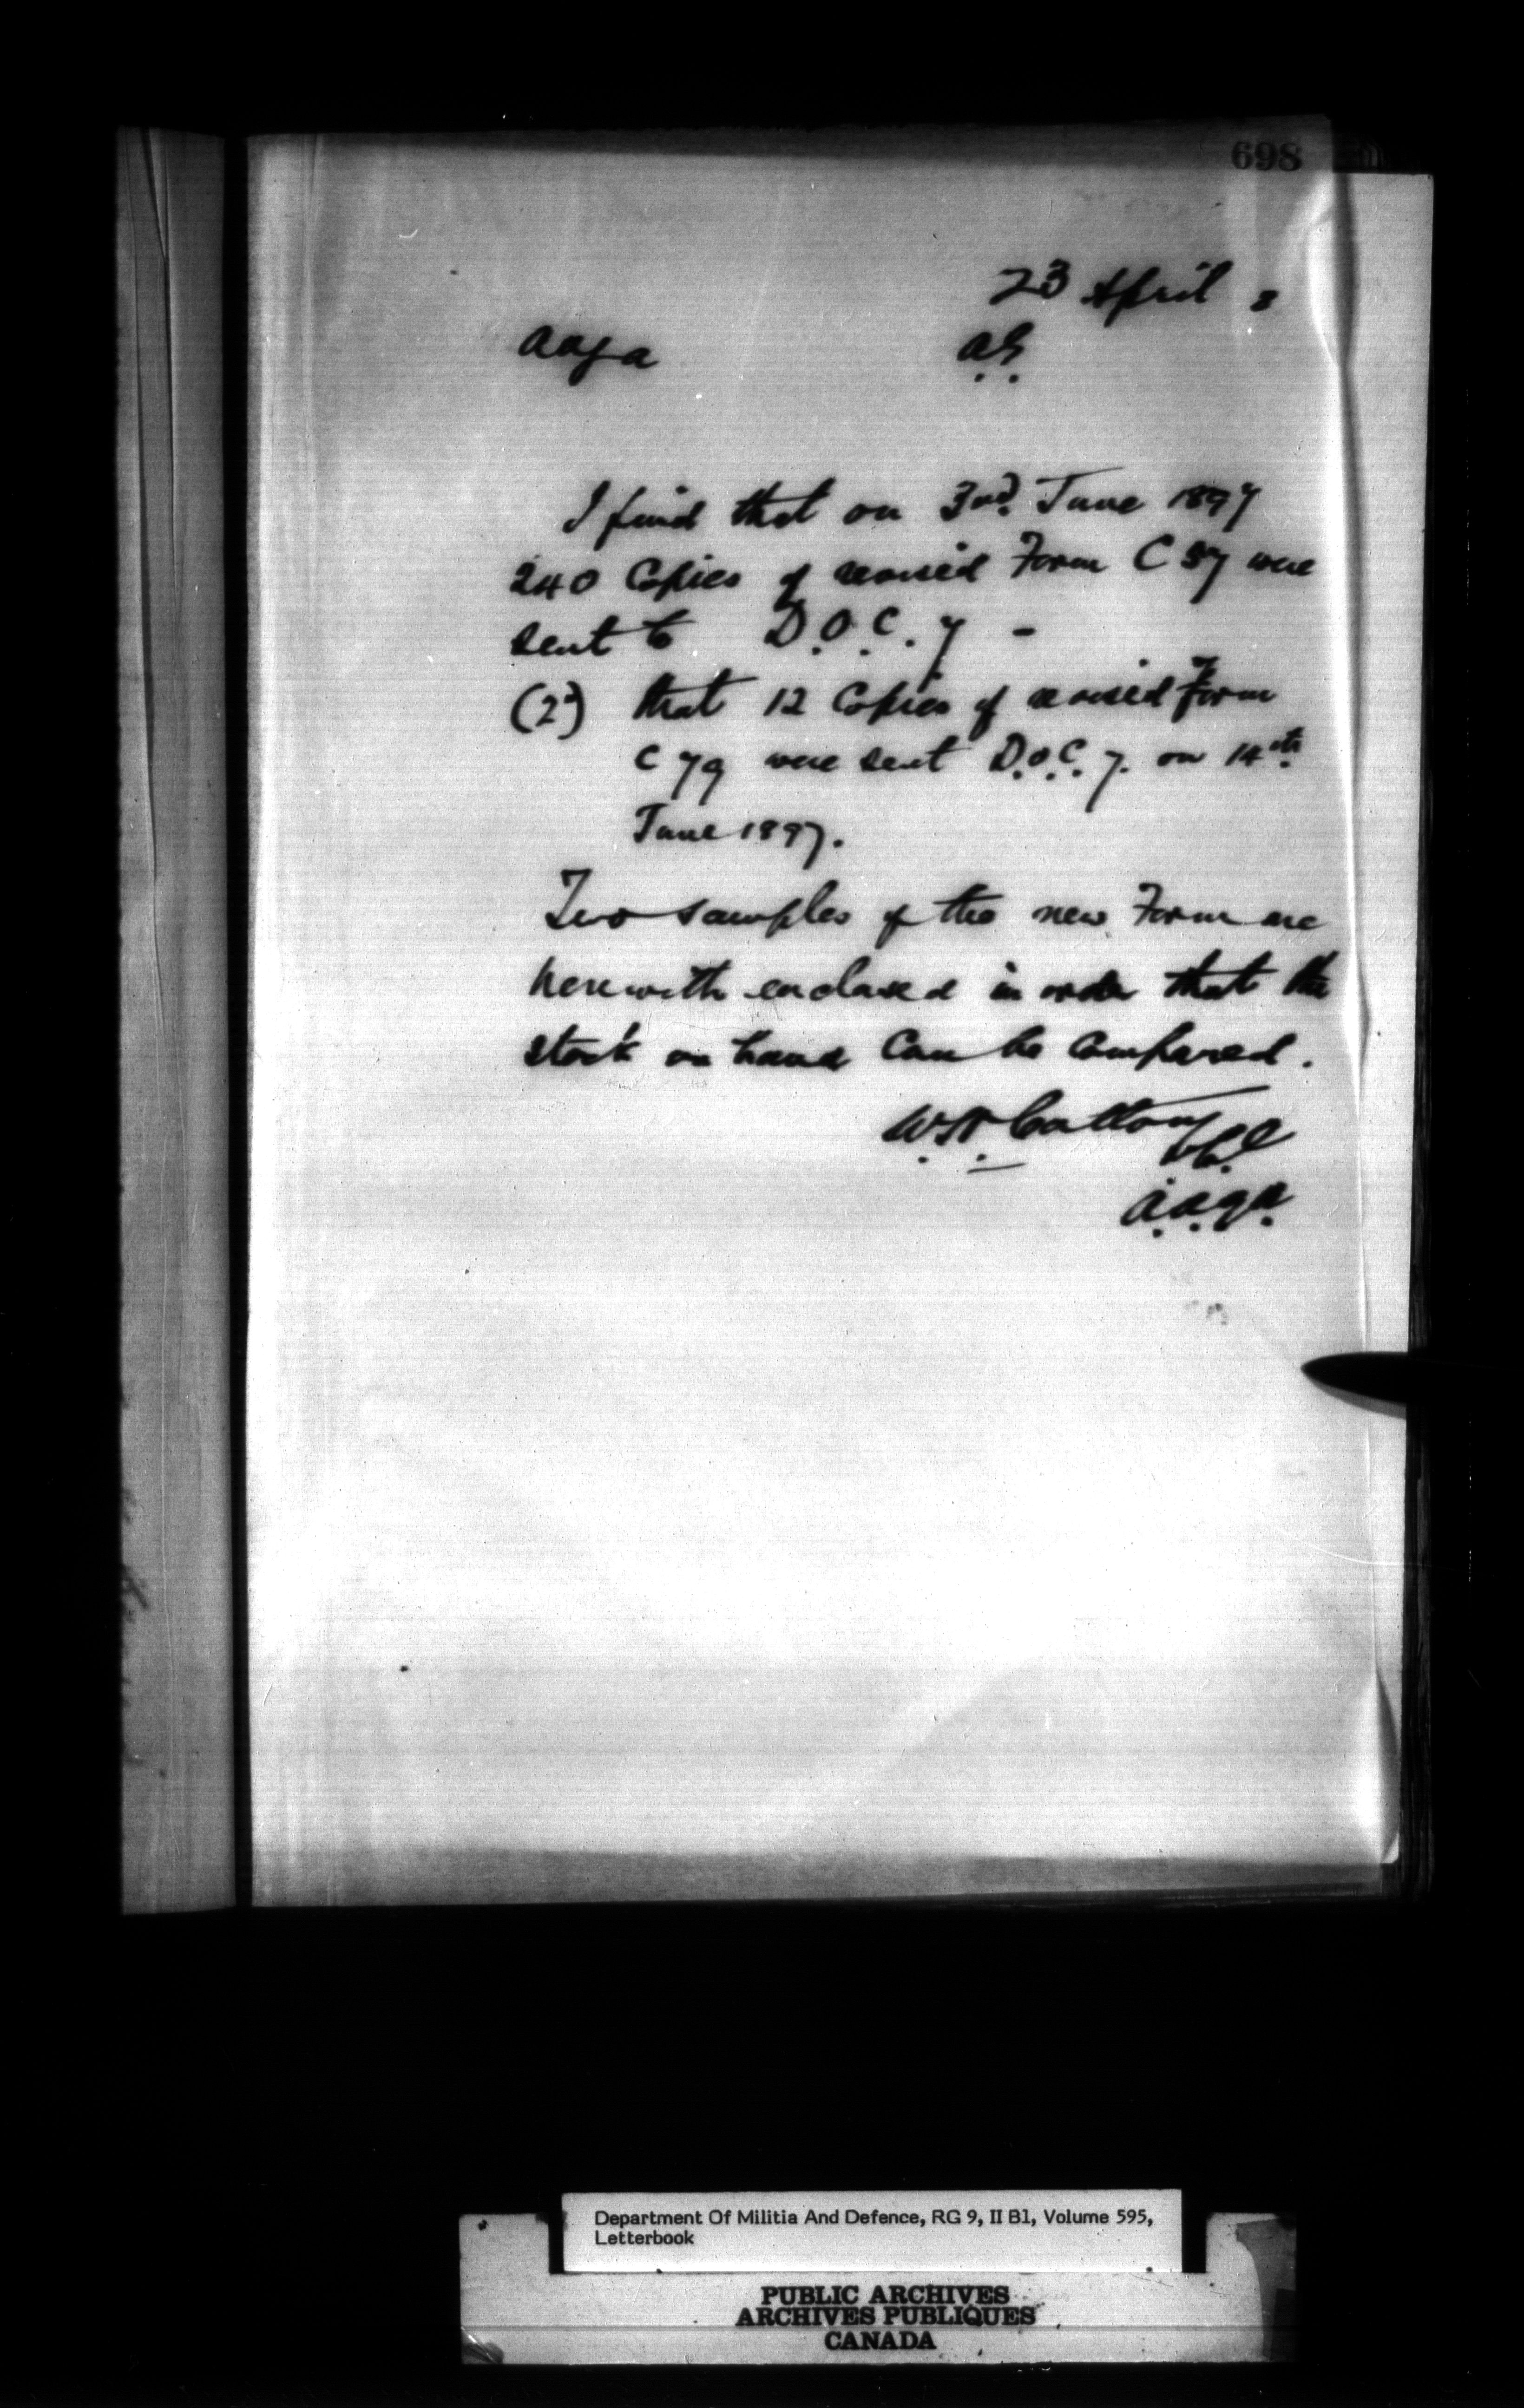 698
23 April 8
aaga A.G.
I find that on 3rd. June 1897
240 Copies of revised Form C 57 were
sent to D.O.C. 7 -
(2) that 12 Copies of revised Form
C 79 were sent D.O.C. 7. on 14th
June 1897.
Two samples of the new Form are
herewith enclosed in order that the
stock on hand Can be Compared.
W.H. Cotton
a.a.g.a.
Department Of Militia And Defence, RG 9, II B1, Volume 595,
Letterbook
PUBLIC ARCHIVES
ARCHIVES PUBLIQUES
CANADA